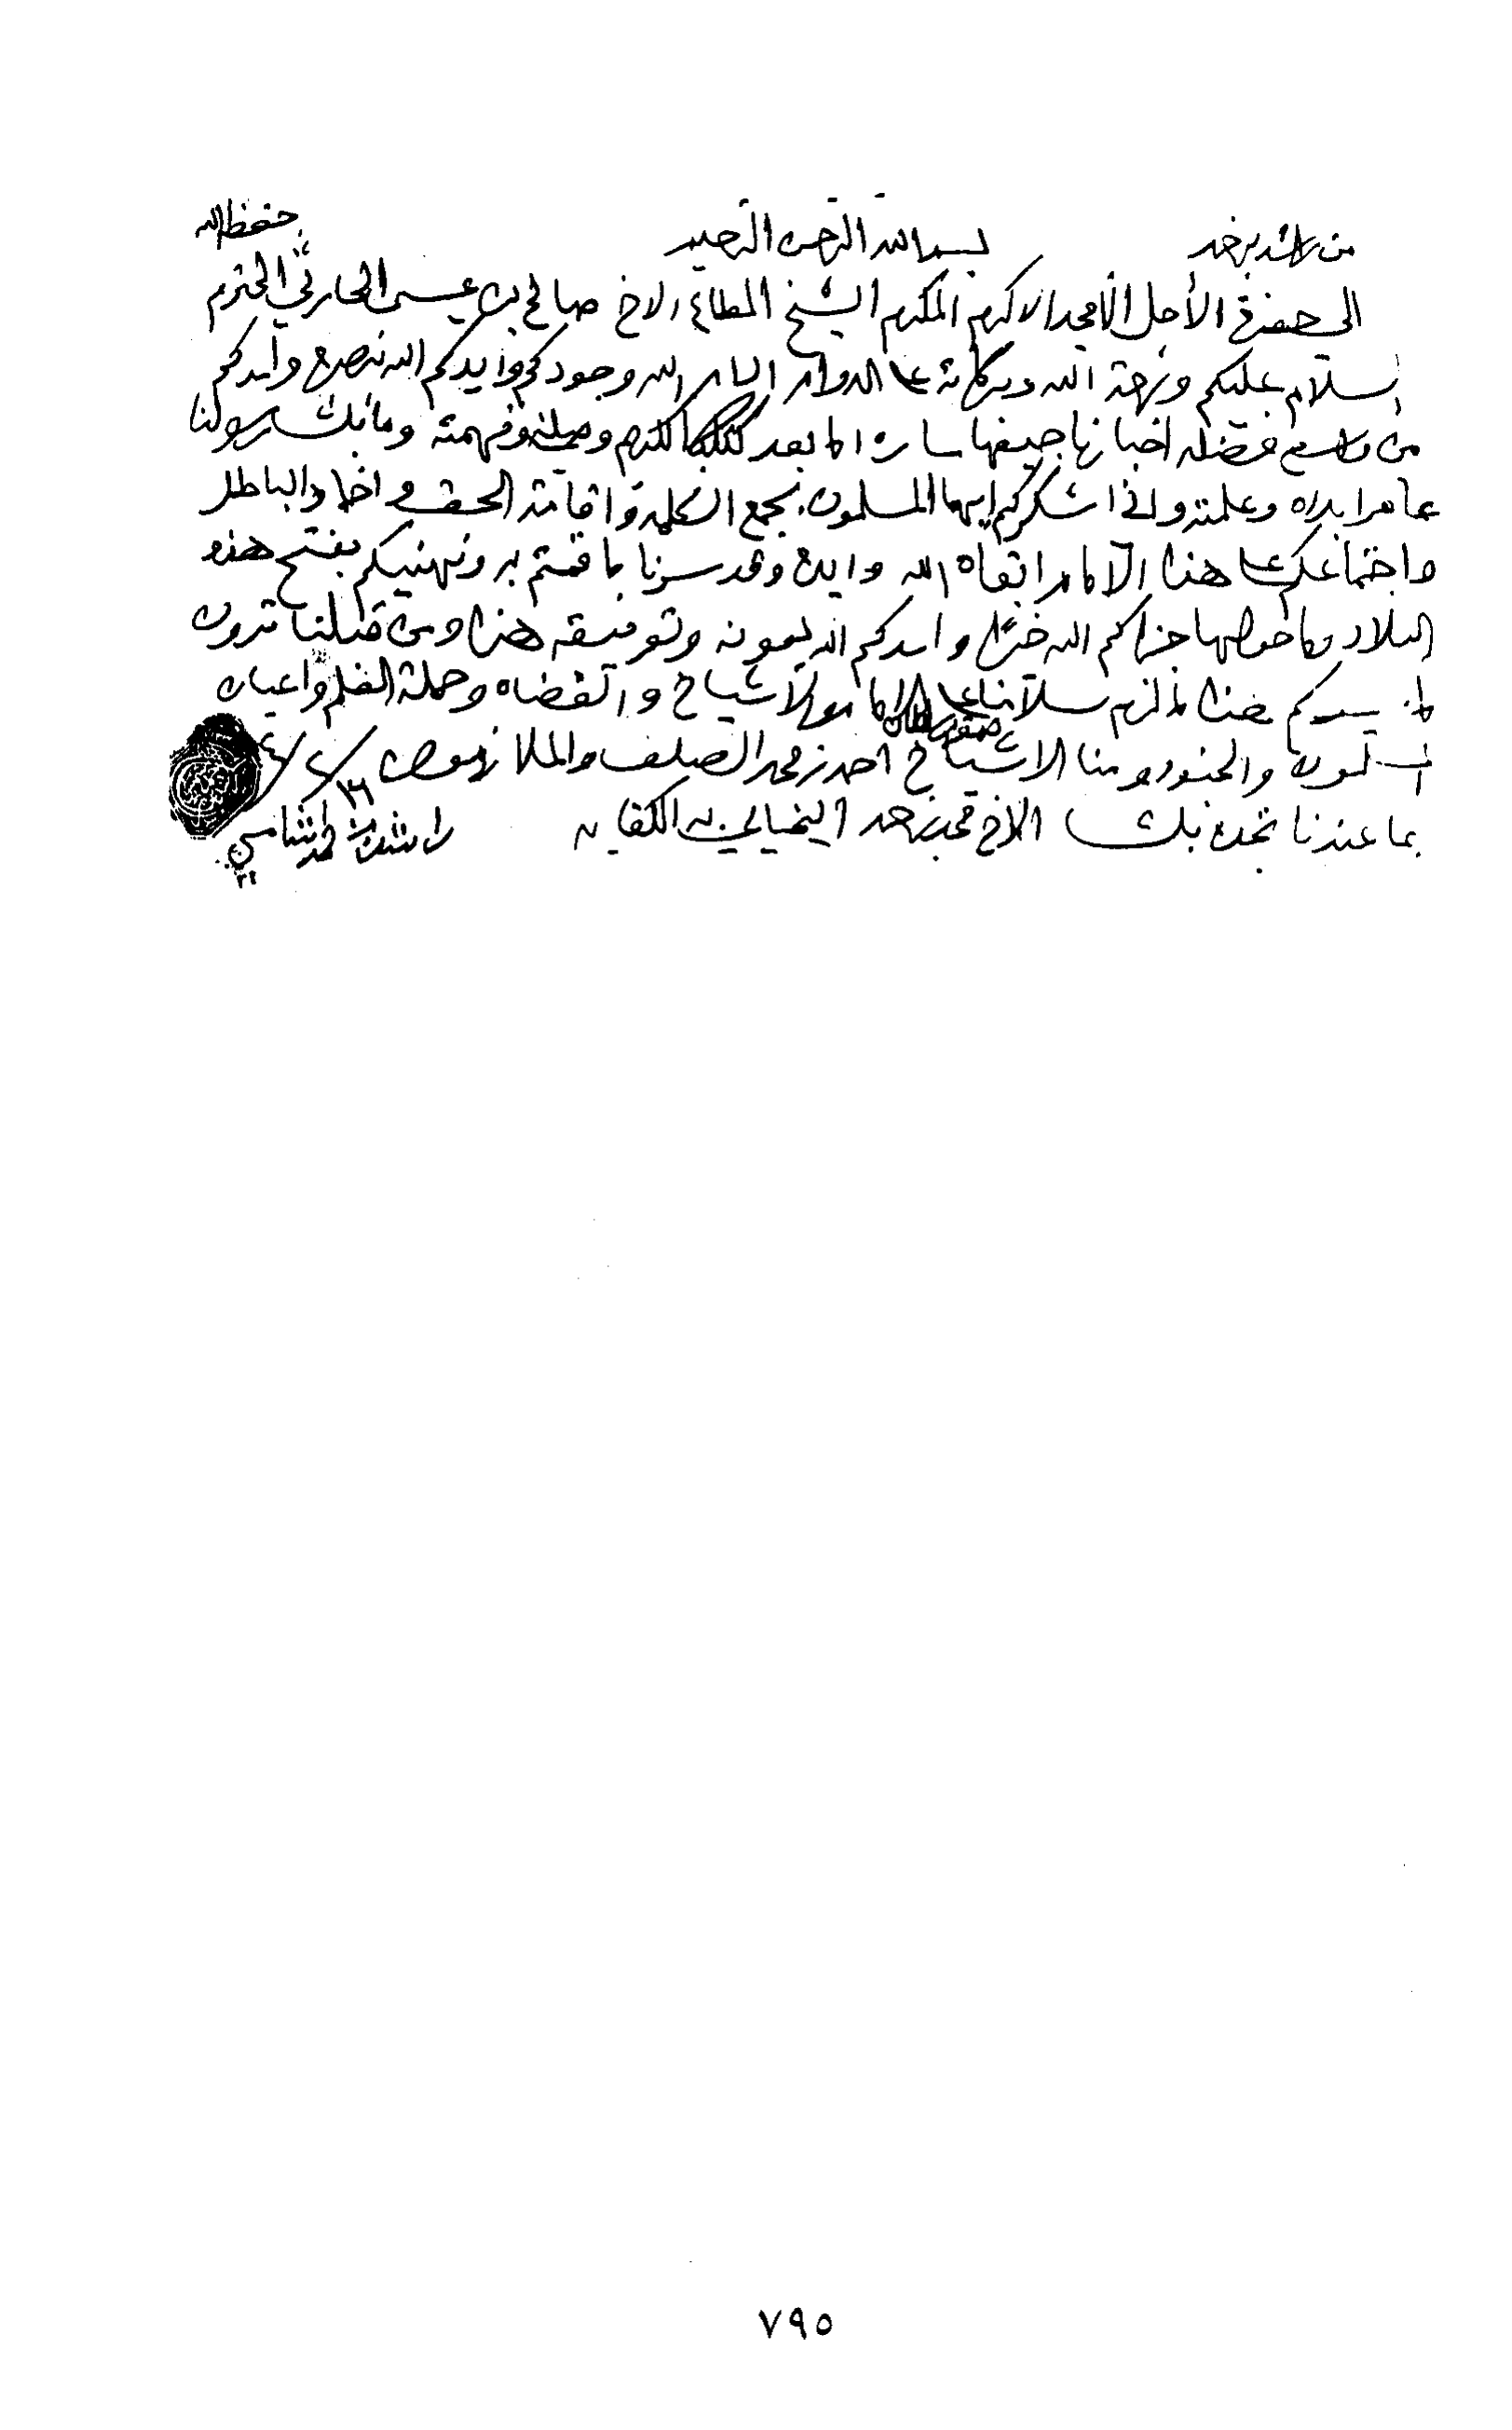 من راشد بن حمد
بسم الله الرحمن الرحيم
حفظه الله
الى حضرة الأجل الأمجد الاكرم المكرم الشيخ المطاع الاخ صالح بن عيسى الحارثي المحترم
السلام عليكم ورحمة الله وبركاته على الدوام الله وجودكم وايدكم الله بنصره وامدكم
من واسع فضله اخبارنا جميعها ساره اما بعد كتابكم الكريم وصلنا وفهمته وما بك رسولنا
عامر ابداه وعلمته واني اشكركم ايها المسلمون بجمع الكلمة واقامة الحق واخماد الباطل
واجتماعكم على هذا الامام ابقاه الله وايده وقد سرنا ما قمتم به ونهنيكم بفتح هذه
البلاد وما حولها جزاكم الله خيرا وامدكم الله بعونه وتوفيقه هذا ومن قبلنا ترون
ما يسركم هذا ما لزم سلامنا على الامام والأشياخ والقضاه وحملة العلم واعيان
المسلمون والجنود ومنا الاشياخ احمد بن محمد الصلف والملازمون
بما عندنا نحن بك الاخ محمد بن حمد
راشد بن حمد الشامسي
٧٩٥